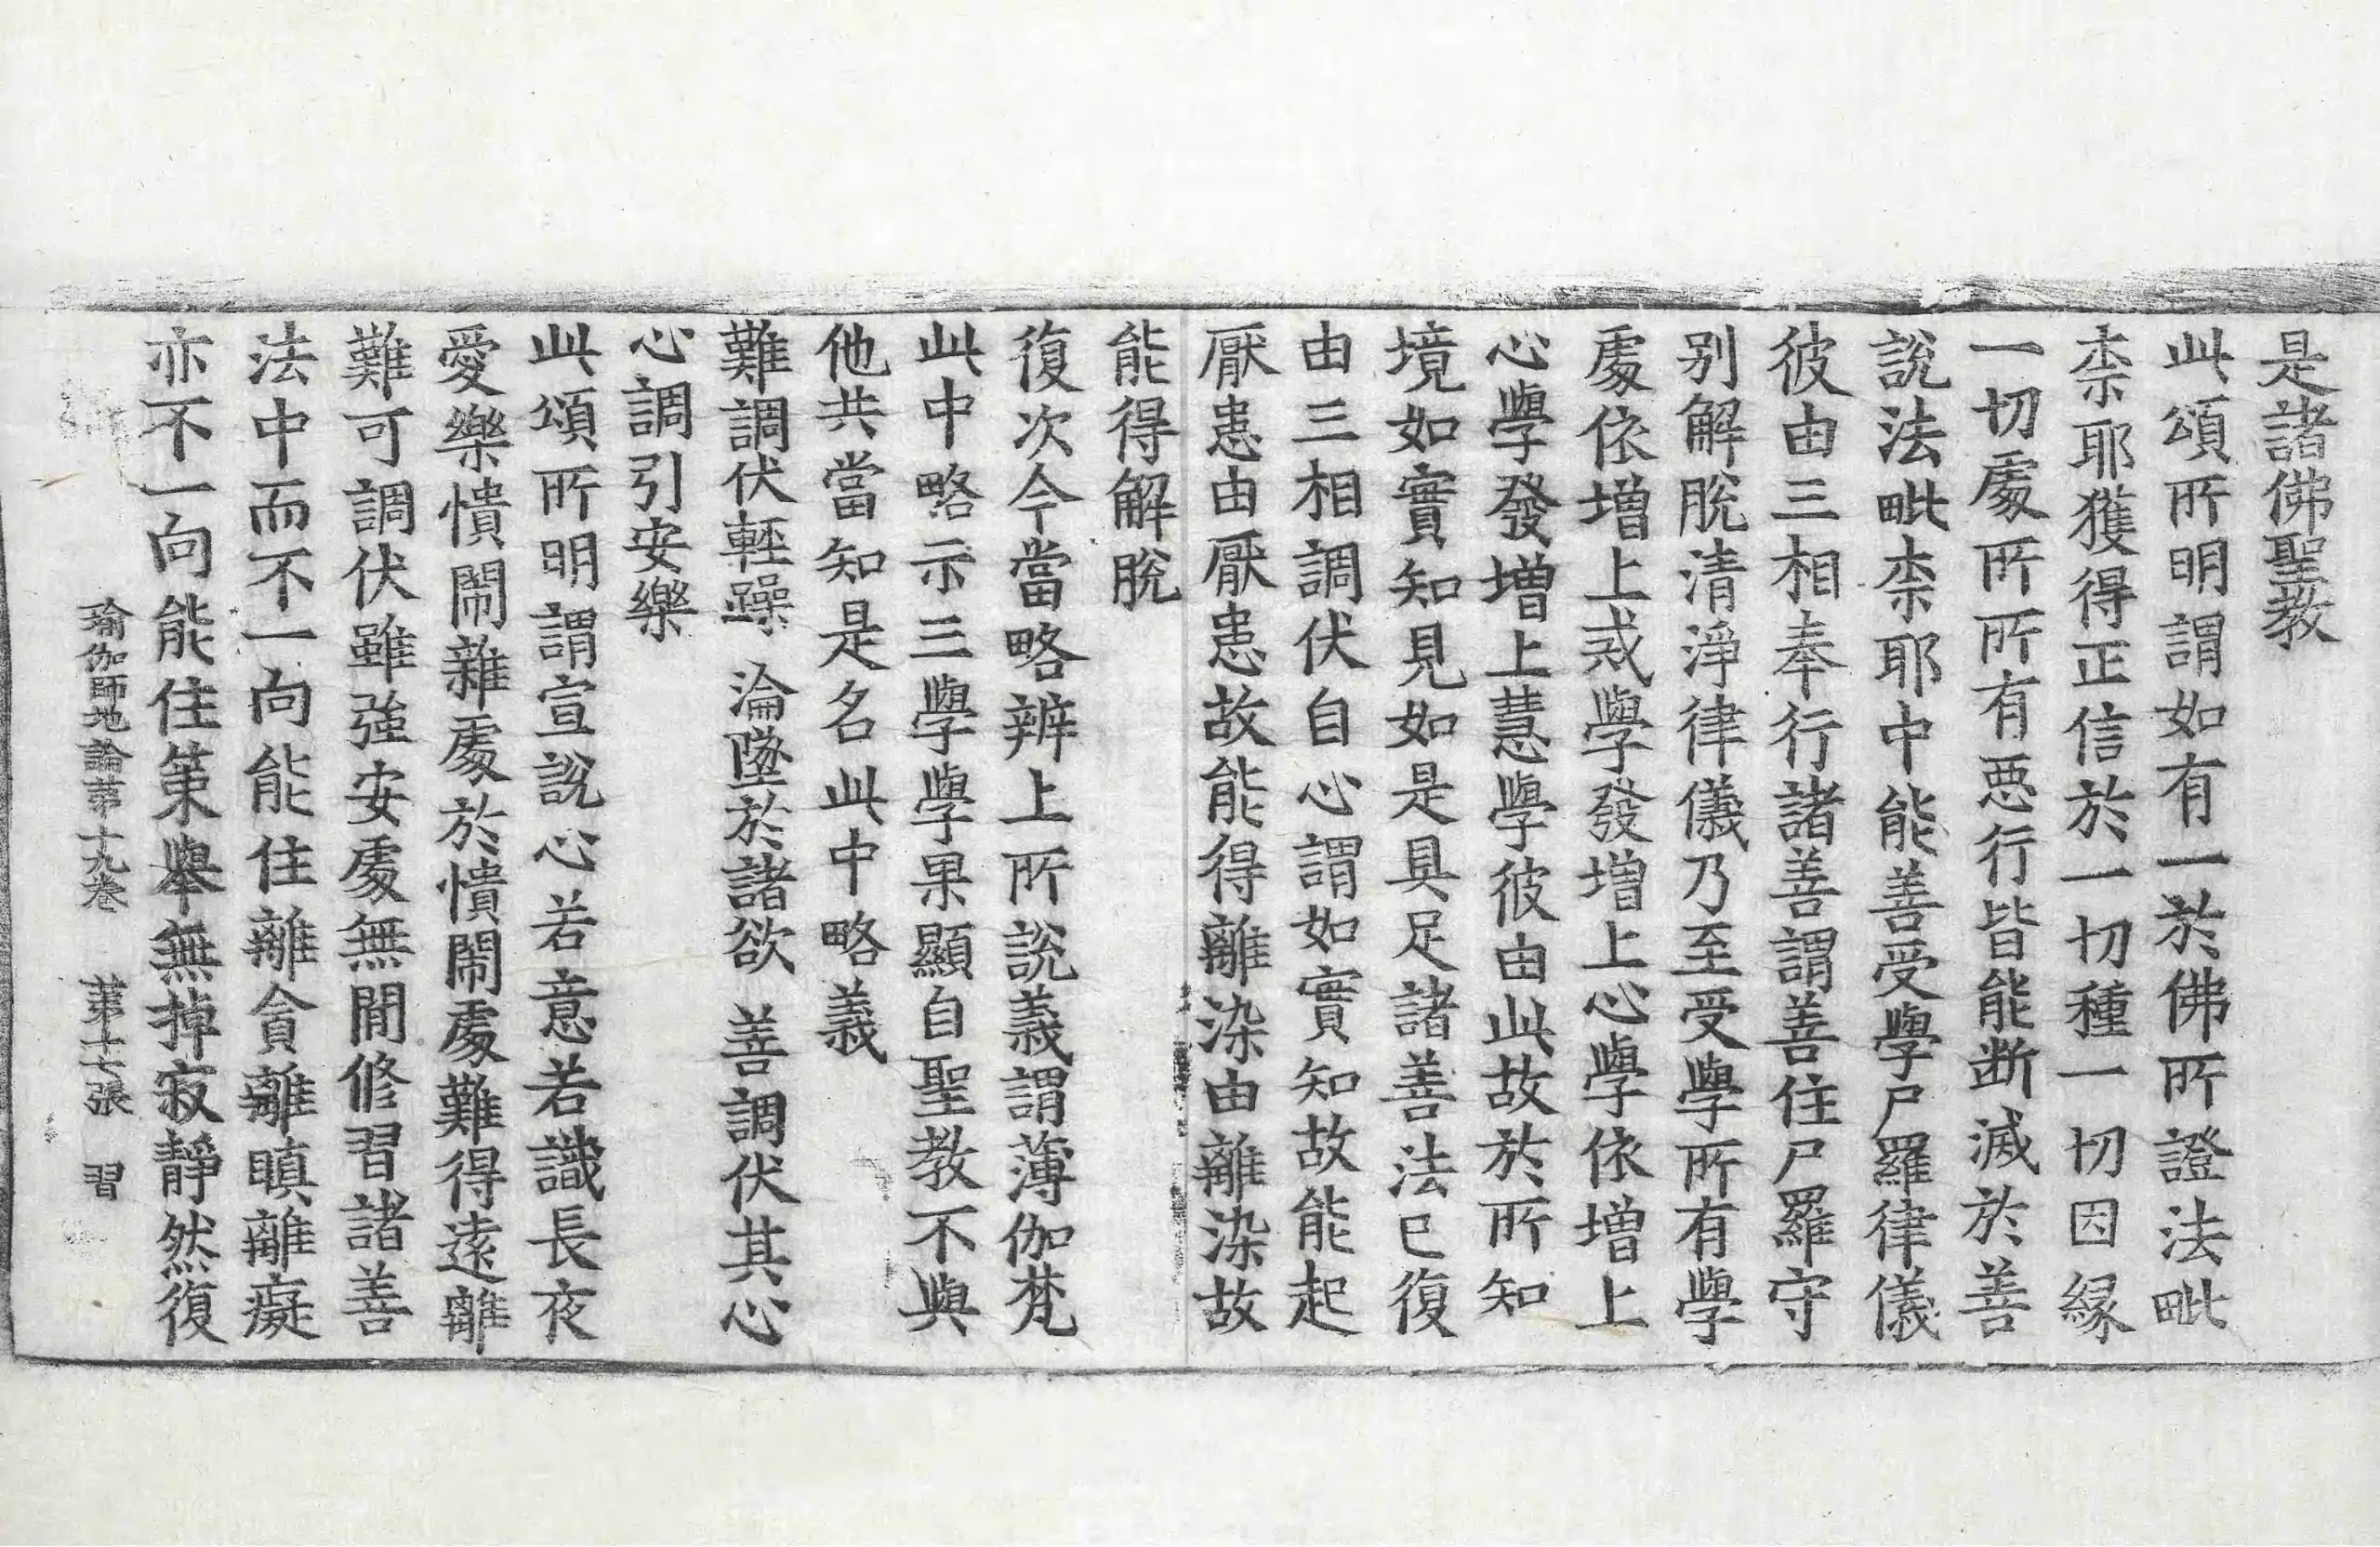 是諸佛聖教
此頌所明謂如有一於佛所證法毗
柰耶獲得正信於一切種一切因緣
一切處所所有惡行皆能断滅於善
說法毗柰耶中能善受學尸羅律儀
彼由三相奉行諸善謂善住尸羅守
别解脫清淨律儀乃至受學所有學
處依增上戒學發增上心學依增上
心學發增上慧學彼由此故於所知
境如實知見如是具足諸善法已復
由三相調伏自心謂如實知故能起
厭恚由厭恚故能得離染由離染故
能得解脫
復次今當略辨上所說義謂薄伽梵
此中略示三學學果顯自聖教不與
他共當知是名此中略義
難調伏輕躁 淪墜於諸欲 善調伏其心
心調引安樂
此頌所明謂宣說心若意若識長夜
愛樂憒鬧雜處於憒鬧處難得遠離
難可調伏雖強安處無閒修習諸善
法中而不一向能住離貪離瞋離癡
亦不一向能住策舉無掉寂靜然復
瑜伽師地論第十九卷 第十七張 習